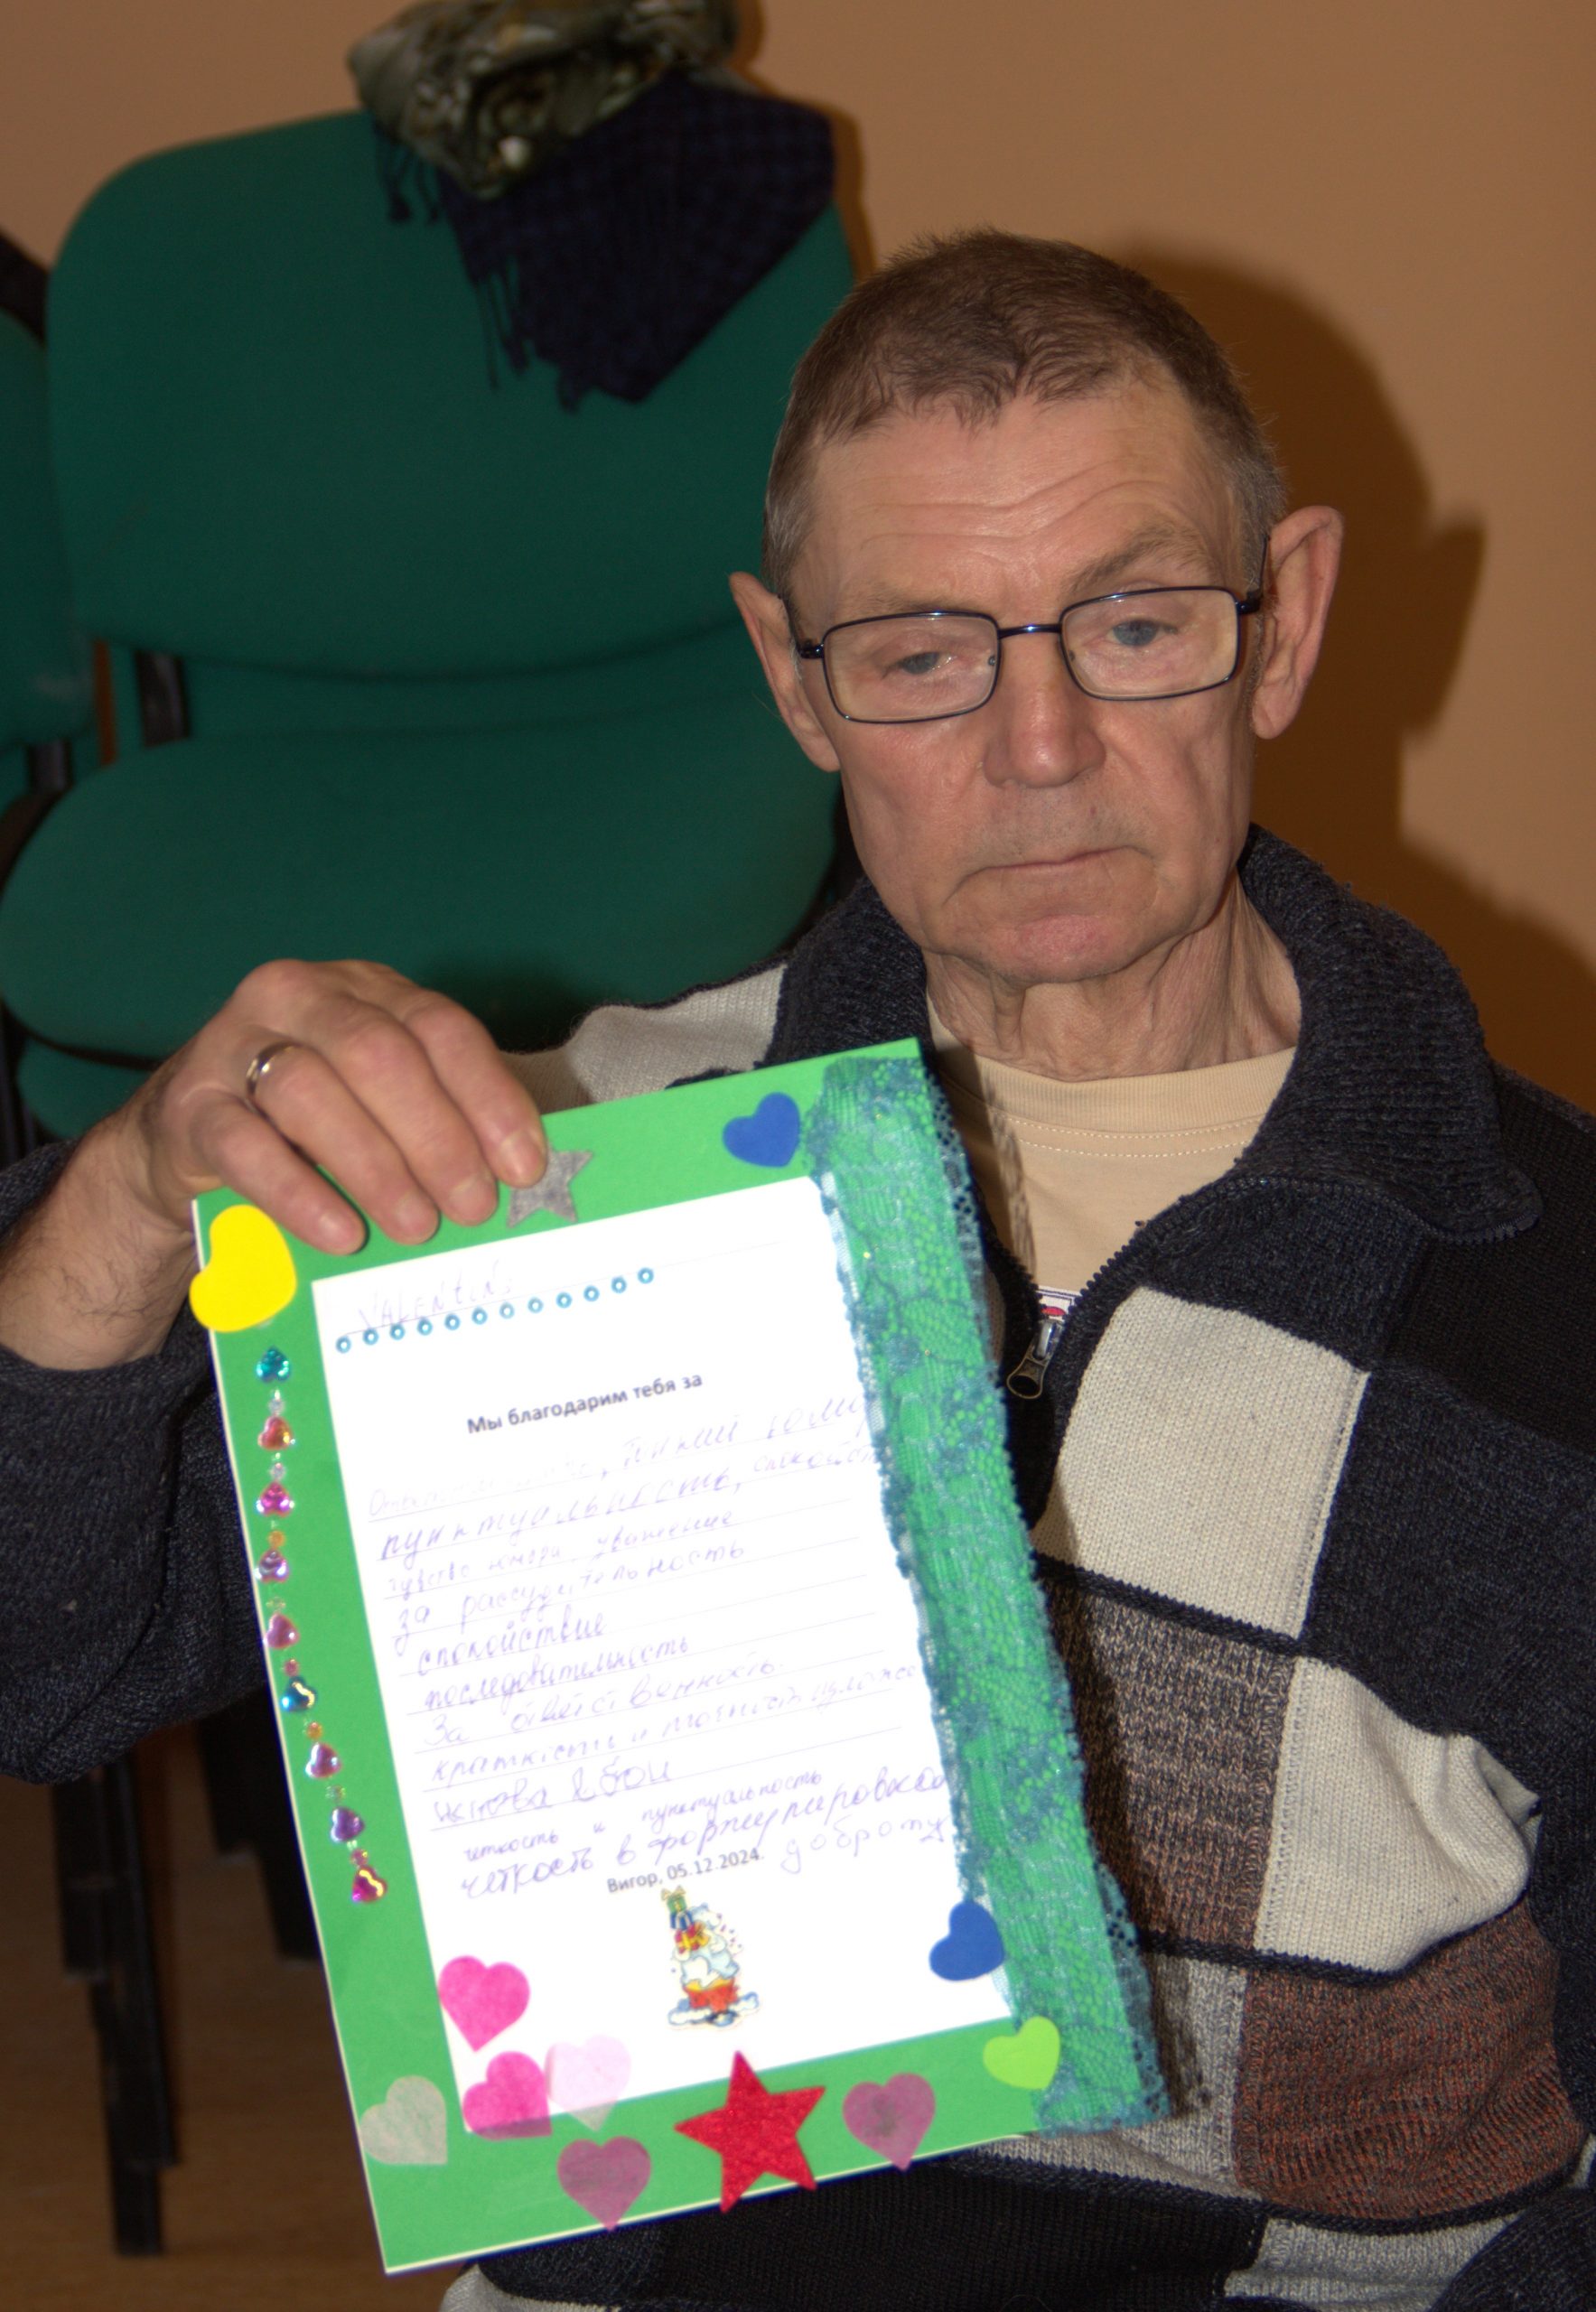 VALENTINS
Мы благодарим тебя за
тонкий юмор
пунктуальность, спокойст
чувство юмора, уважение
за рассудительность
спокойствие
последовательность
За ответственность.
краткость и точность
четкость и пунктуальность
четкость в формулировках
доброту
Вигор, 05.12.2024.